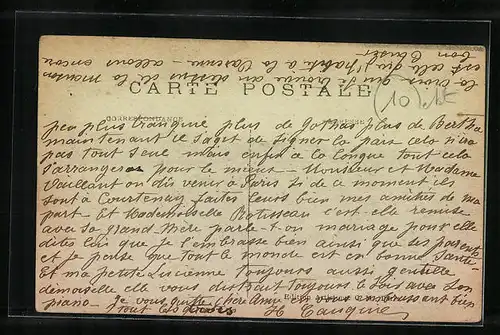 la croix qui se trouve au dessus de la maison
est celle que j'habite à la Varenne - allons encore
bon
CARTE POSTALE
CORRESPONDANCE
ADRESSE
(10)
peu plus tranquille plus de gothas plus de Bertha
maintenant il s'agit de signer la paix cela n'ira
pas tout seul mais enfin à la longue tout cela
s'arrangera pour le mieux - Monsieur et Madame
Vaillant on dû venir à Paris si de ce moment ils
sont à Courtenay faites leurs bien mes amitiés de ma
part Et Mademoiselle c'est elle remise
avec sa grand mère parle-t-on mariage pour elle
dites lui que je l'embrasse bien ainsi que ses parents
et je pense que tout le monde est en bonne santé
Et ma petite Lucienne toujours aussi gentille
demoiselle elle vous distrait toujours le soir avec son
piano - Je vous quitte chère Amie en vous embrassant bien
tout